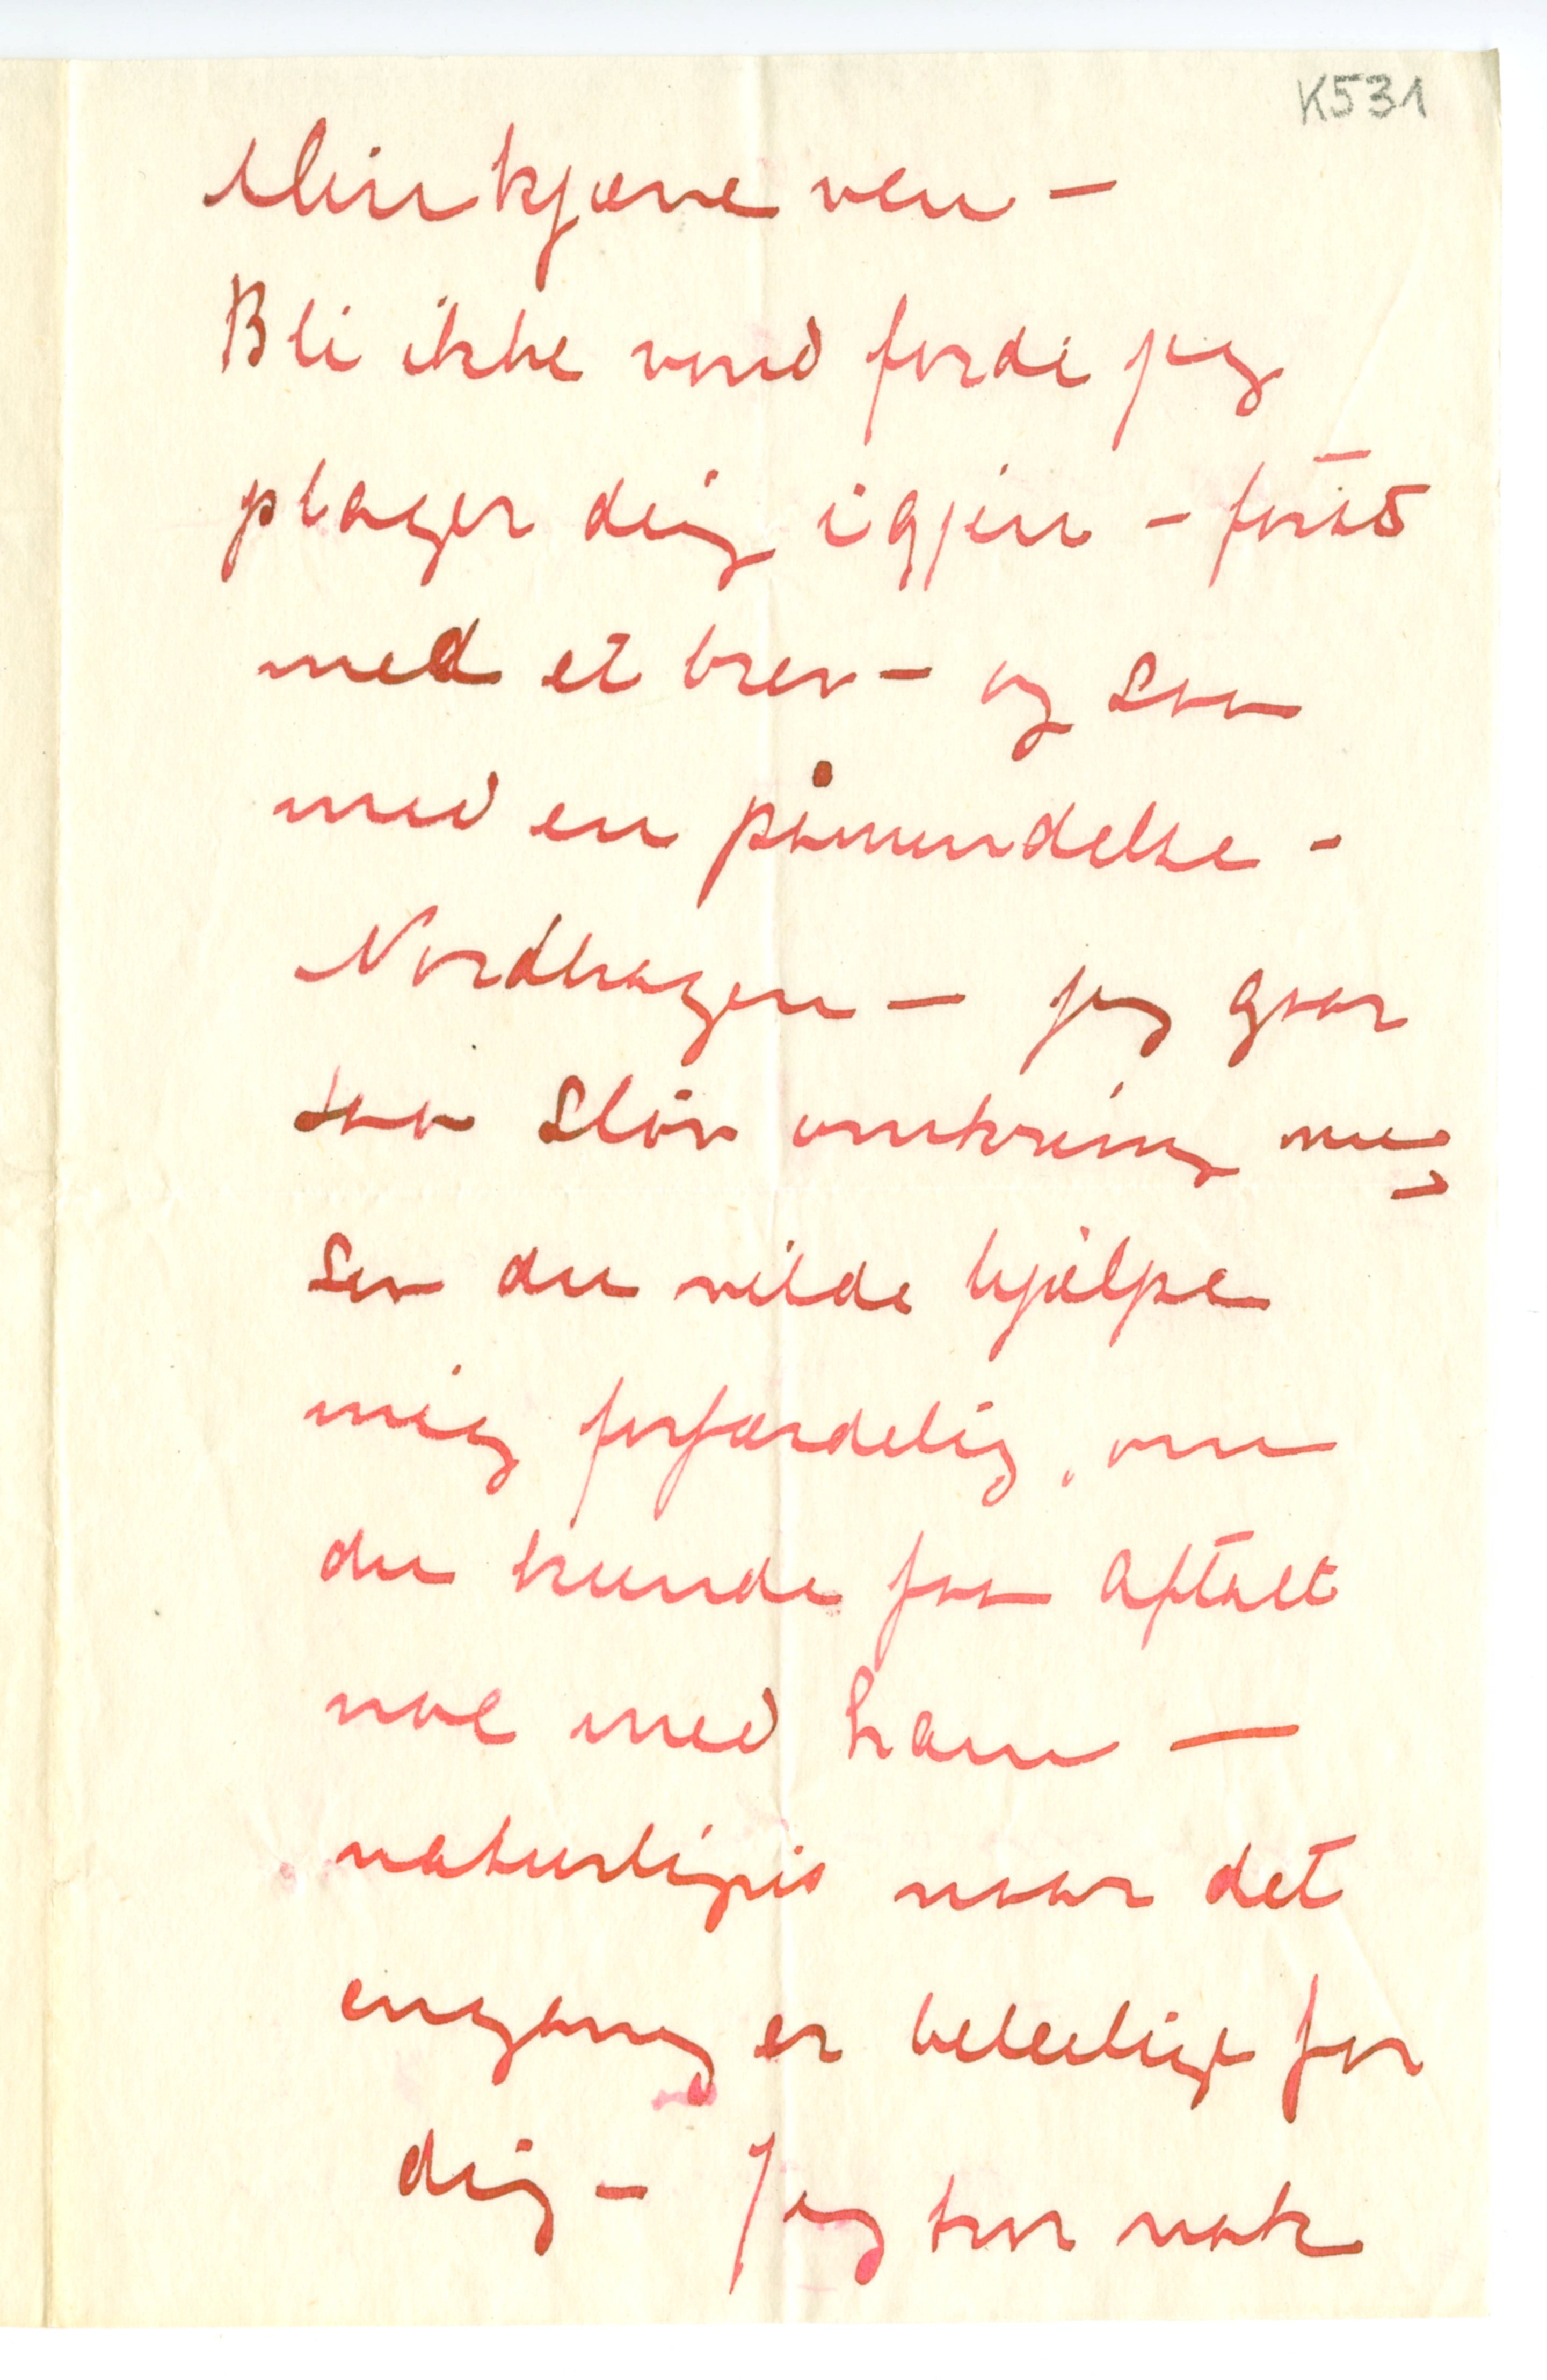 K531
Min kjære ven –
Bli ikke vond fordi jeg
plager dig igjen – først
med et brev – og saa
med en påmindelse –
Nordhagen – jeg gaar
saa sløv omkring nu,
du vilde hjælpe
mig forfærdelig, om
du kunde faa aftalt
noe med ham —
naturligvis naar det
engang er beleiligt for
dig – Jeg tror nok